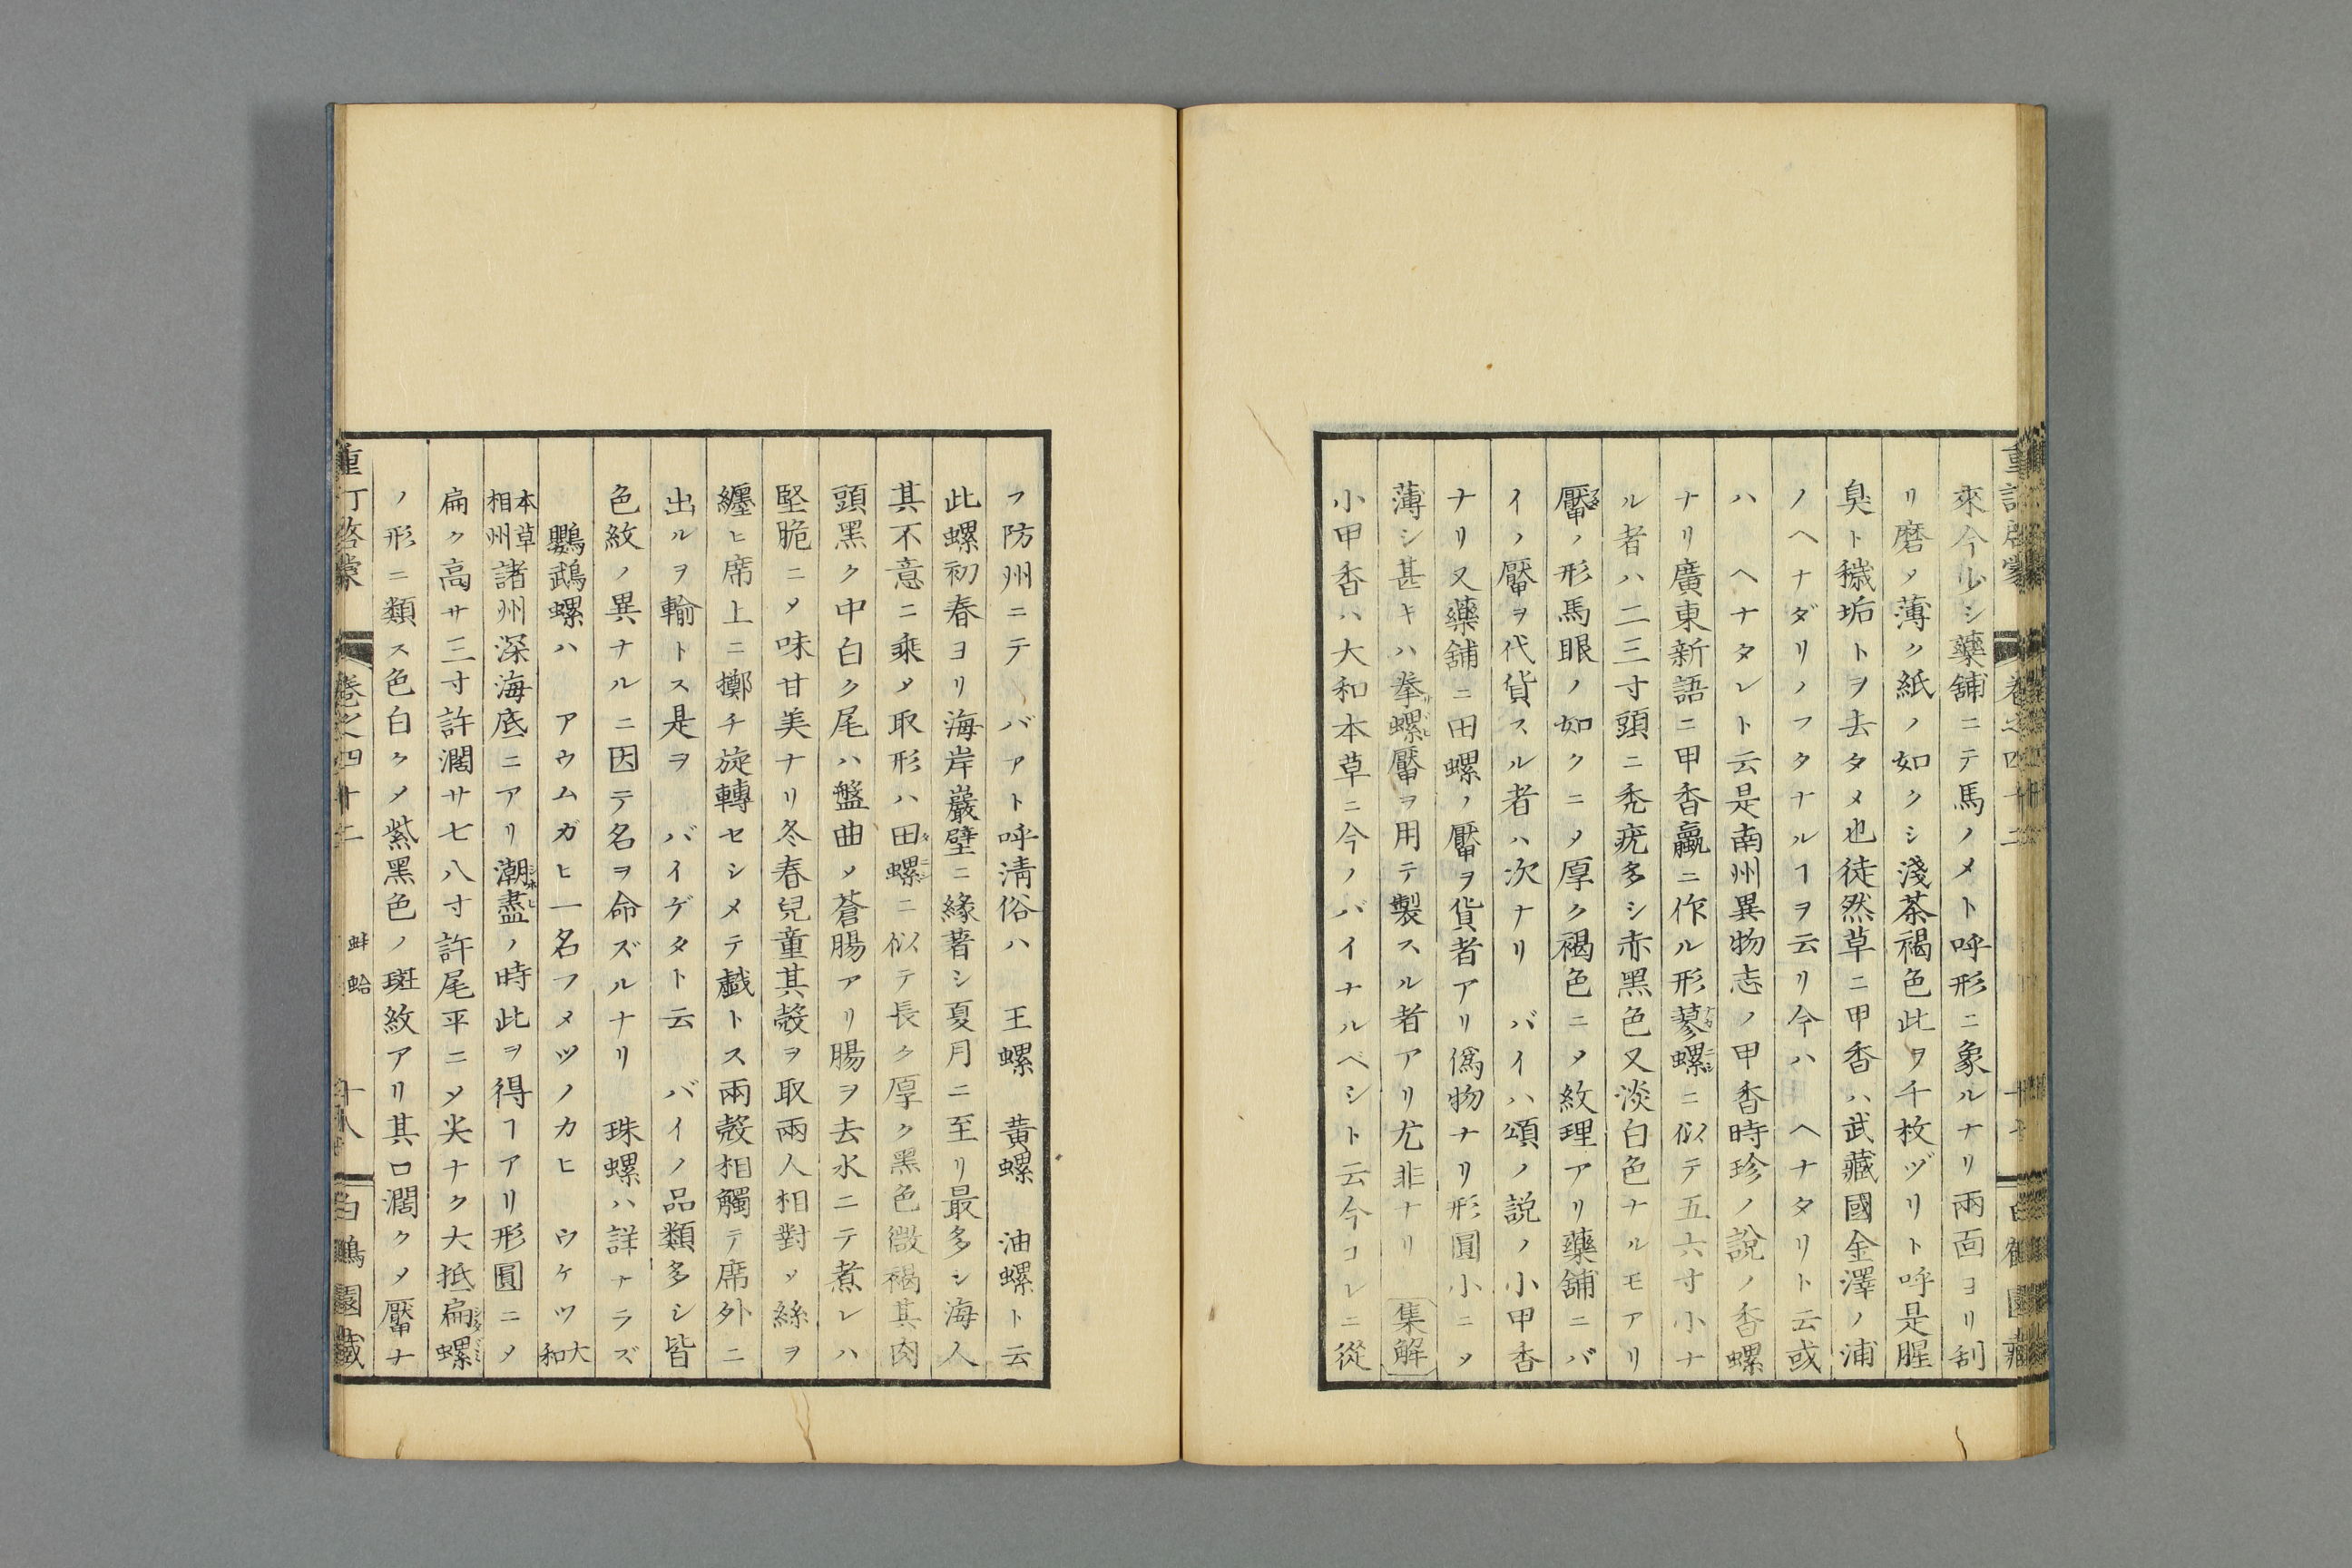 來今少シ藥舖ニテ馬ノメト呼形ニ象ルナリ兩面ヨリ刮
リ磨メ薄ク紙ノ如クシ淺茶褐色此ヲ千枚ヅリト呼是腥
臭ト穢垢トヲ去タメ也徒然草ニ甲香ハ武藏國金澤ノ浦
ノヘナダリノフタナルヿヲ云リ今ハヘナタリト云或
ハ ヘナタレト云是南州異物志ノ甲香時珍ノ說ノ香螺
ナリ廣東新語ニ甲香蠃ニ作ル形蓼螺ニ似テ五六寸小ナ
ル者ハ二三寸頭ニ禿疣多シ赤黑色又淡白色ナルモアリ
厴ノ形馬眼ノ如クニメ厚ク褐色ニメ紋理アリ藥舖ニバ
イノ厴ヲ代貨スル者ハ次ナリ バイハ頌ノ說ノ小甲香
ナリ又藥舖ニ田螺ノ厴ヲ貨者アリ僞物ナリ形圓小ニメ
薄シ甚キハ拳螺厴ヲ用テ製スル者アリ尤非ナリ 集解
小甲香ハ大和本草ニ今ノバイナルベシト云今コレニ從
フ防州ニテ バアト呼淸俗ハ 王螺 黃螺 油螺ト云
此螺初春ヨリ海岸巖壁ニ緣著シ夏月ニ至リ最多シ海人
其不意ニ乘メ取形ハ田螺ニ似テ長ク厚ク黑色微褐其肉
頭黑ク中白ク尾ハ盤曲メ蒼腸アリ腸ヲ去水ニテ煮レハ
堅脆ニメ味甘美ナリ冬春兒童其殼ヲ取兩人相對メ絲ヲ
纏ヒ席上ニ擲チ旋轉セシメテ戱トス兩殼相觸テ席外ニ
出ルヲ輸トス是ヲ バイゲタト云 バイノ品類多シ皆
色紋ノ異ナルニ因テ名ヲ命ズルナリ 珠螺ハ詳ナラズ
鸚鵡螺ハ アウムガヒ一名フメツノカヒ ウケツ大和
本草相州諸州深海底ニアリ潮盡ノ時此ヲ得ヿアリ形圓ニメ
扁ク高サ三寸許濶サ七八寸許尾平ニメ尖ナク大抵扁螺
ノ形ニ類ス色白クメ紫黑色ノ斑紋アリ其口濶クメ厴ナ
重訂啓蒙 卷之四十二 蚌蛤 十八 白鶴園藏